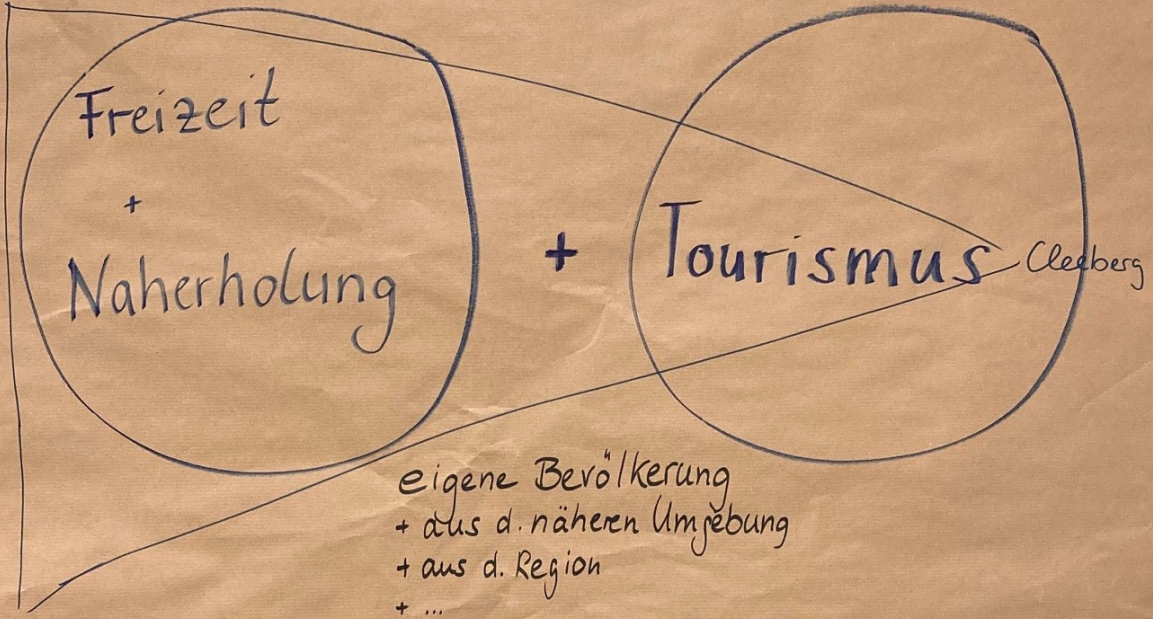 Freizeit
+
Naherholung
+
Tourismus
Cleeberg
eigene Bevölkerung
+ aus d. näheren Umgebung
+ aus d. Region
+ ...